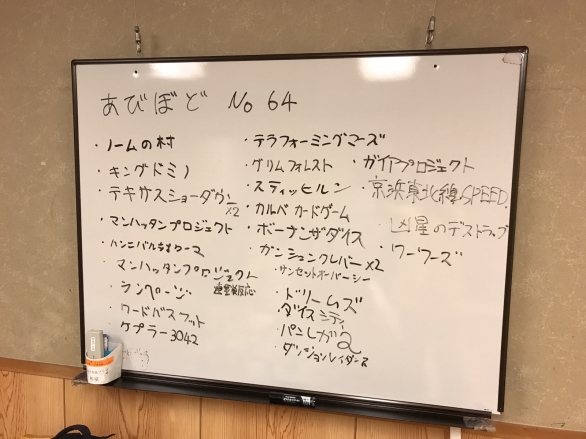 あびぼど No 64
・ノームの村
・キングドミノ
・テキサスショーダウン ×2
・マンハッタンプロジェクト
・ハンニバル
・マンハッタンプロジェクト 連鎖反応
・ランページ
・ワードバスケット
・ケプラー3042
・テラフォーミングマーズ
・グリムフォレスト
・スティッヒルン
・カルバ カードゲーム
・ボーナンザダイス
・ガンシュンクレバー ×2
・サンセットオーバーシー
・ドリームズ
・ダイスシティ
・パンレガ2
・ダンジョンレイダース
・ガイアプロジェクト
・京浜東北線SPEED
凶星のデストラップ
・ワーワーズ